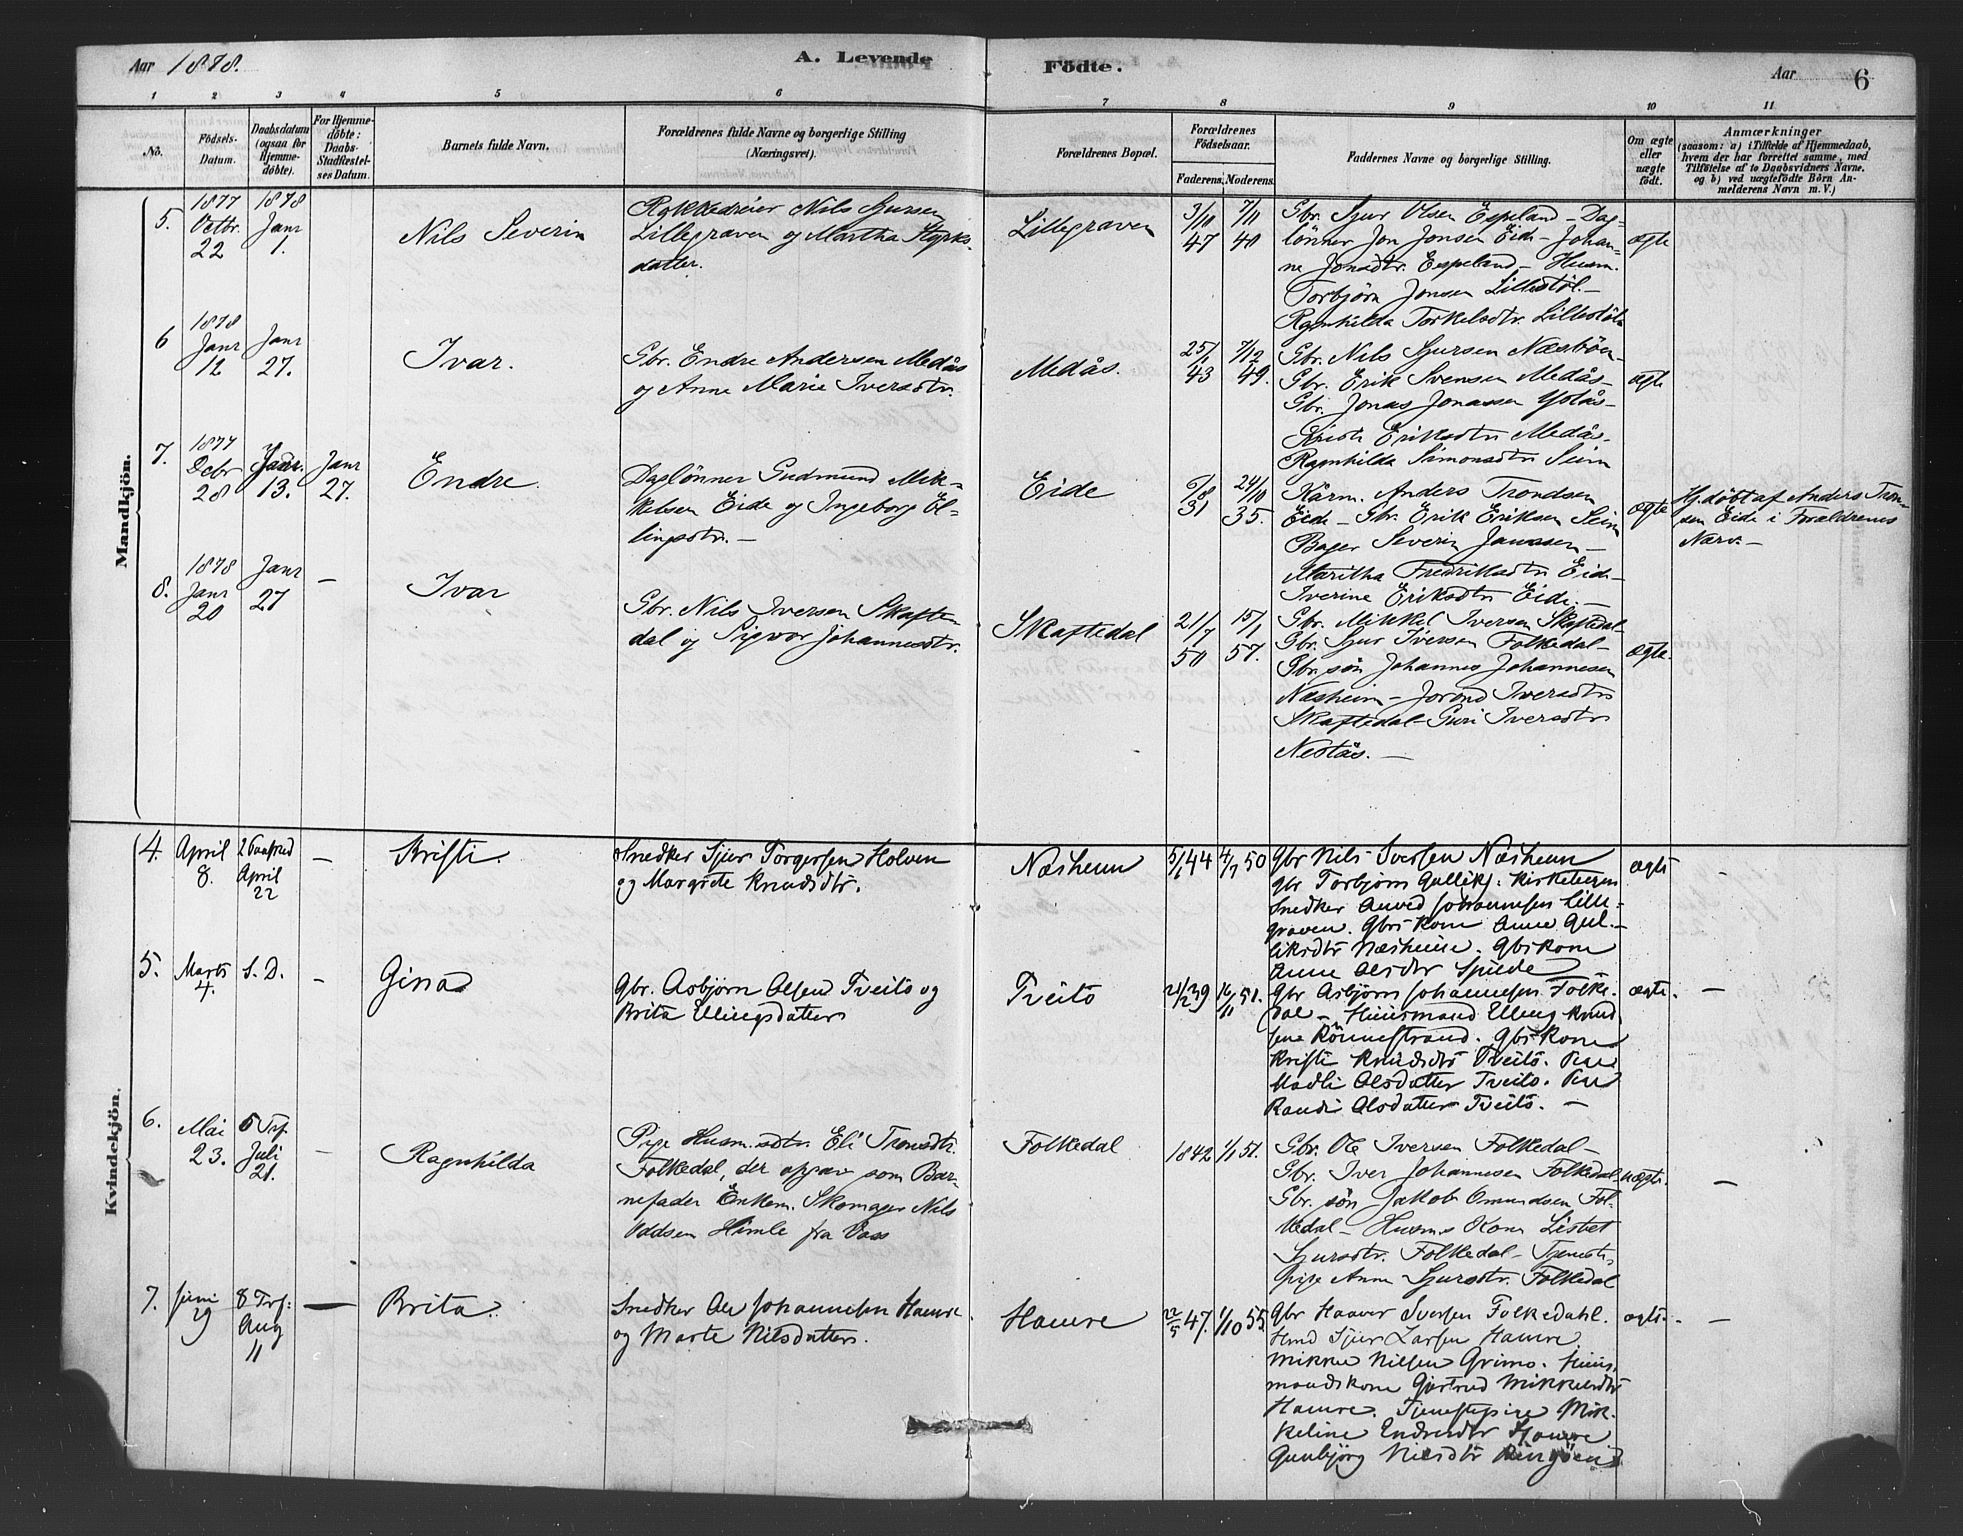 Aar 1878.
A. Levende Födte.
Aar 6
1 2 3 4 5 6 7 8 9 10 11
No.
Födsels-Datum.
Daabsdatum (ogsaa for Hjemmedöbte).
For Hjemmedöbte: Daabs-Stadfæstelses Datum.
Barnets fulde Navn.
Forældrenes fulde Navne og borgerlige Stilling (Næringsvei).
Forældrenes Bopæl.
Forældrenes Födselsaar.
Faderens. Moderens.
Faddernes Navne og borgerlige Stilling.
Om ægte eller uægte födt.
Anmærkninger
(saasom: a) i Tilfælde af Hjemmedaab, hvem der har forrettet samme, med Tilföielse af to Daabsvidners Navne, og b) ved uægtefödte Börn Anmelderens Navn m. V.)
Mandkjön.
5. 1877 Octbr. 22
1878 Janr 1.
Nils Severin
Rokkedreier Nils Sjursen
Lillegraven og Martha Styrks-
datter.
Lillegraven
3/10 47
7/11 40
Gbr. Sjur Olsen Espeland - Dag-
lönner Jon Jonsen Eide - Johan-
ne Jonsdtr. Espeland - Husm.
Torbjörn Jonsen Lillestöl -
Ragnhilda Torkelsdtr. Lillestöl
ægte
6 1878 Janr 12
Janr 27.
Ivar.
Gbr. Endre Andersen Medås
og Anne Marie Iversdtr.
Medås.
25/1 43
7/12 49.
Gbr. Nils Sjursen Næsböen -
Gbr. Erik Svensen Medås -
Gbr. Jonas Jonassen
Kristi Eriksdtr Medås -
Ragnhilda Simonsdtr Seim
ægte
7. 1877 Decbr 28
Janr. 13.
Janr 27.
Endre.
Daglönner Gudmund Mik-
kelsen Eide og Ingeborg El-
lingsdtr. -
Eide
5/8 31
24/10 35.
Kårm. Anders Trondsen
Eide - Gbr. Erik Eriksen Seim
Bager Severin Janssen -
Maritha Fredriksdtr Eide -
Iverine Eriksdtr Eide. -
ægte
Hj. döbt af Anders Tron-
sen Eide i Forældrenes
Nærv. -
8. 1878 Janr 20
Janr 27
-
Ivar
Gbr. Nils Iversen Skafte-
dal og Sigvor Johannesdtr.
Skaftedal
21/7 50
15/1 57.
Gbr. Mikkel Iversen Skaftedal -
Gbr. Sjur Iversen Folkedal -
Gbr. sön Johannes Johannesen
Næsheim - Jorond Iversdtr
Skaftedal - Guri Iversdtr
Nestås. -
ægte.
Kvindekjön.
4. April 8.
April 22
-
Kristi.
Snedker Sjur Torgersen Holven
og Margrete Knudsdtr.
Næsheim
5/1 44
4/7 50
Gbr Nils Iversen Næsheim
gbr Torbjörn Gulliks. Kirkebergen
Snedker Anved Johannesen Lille-
graven. Gbrs kone Anne Gul-
liksdtr Næsheim. Gbs kone
Anne Olsdtr Spilde
ægte
-
5. Marts 4.
S. D.
-
Gina
Gbr. Asbjörn Olsen Tveito og
Brita Ellingsdatter
Tveito
21/2 39
16/11 51.
Gbr Asbjörn Johannesen Folke-
dal - Huusmand Elling Knud-
sen Rönnestrand. Gbs kone
Kristi Knudsdtr Tveito. Pige
Madli Olsdatter Tveito. Pige
Randi Olsdatter Tveito. -
ægte.
-
6. Mai 23.
5 Trf. Juli 21.
-
Ragnhilda
Pige Husm. sdtr. Eli Tronsdtr.
Folkedal, der opgav som Bar-
nefader Enkem. Skomager Nils
Oddsen Himle fra Voss
Folkedal
1842
1/1 51.
Gbr. Ole Iversen Folkedal -
Gbr. Iver Johannesen Folkedal -
Gbr. sön Jakob Omundsen Fol-
kedal - Husms Kone Lisbet
Sjursdtr. Folkedal - Tjeneste-
pige Anne Sjursdtr. Folkedal
uægte.
-
7. Juni 29
8 Trf: Aug 11
-
Brita.
Snedker Ole Johannesen Hamre
og Marte Nilsdatter.
Hamre
22/5 47.
1/10 55.
Gbr Haaver Iversen Folkedahl.
Hmd Sjur Larsen Hamre
Mikkel Nilsen Grimo. Huus-
mandskone Gjertrud Mikkelsdtr
Hamre. Tjenestepige Mik-
keline Endresdtr Hamre
Gunbjörg Nilsdtr Ringöen
ægte.
-